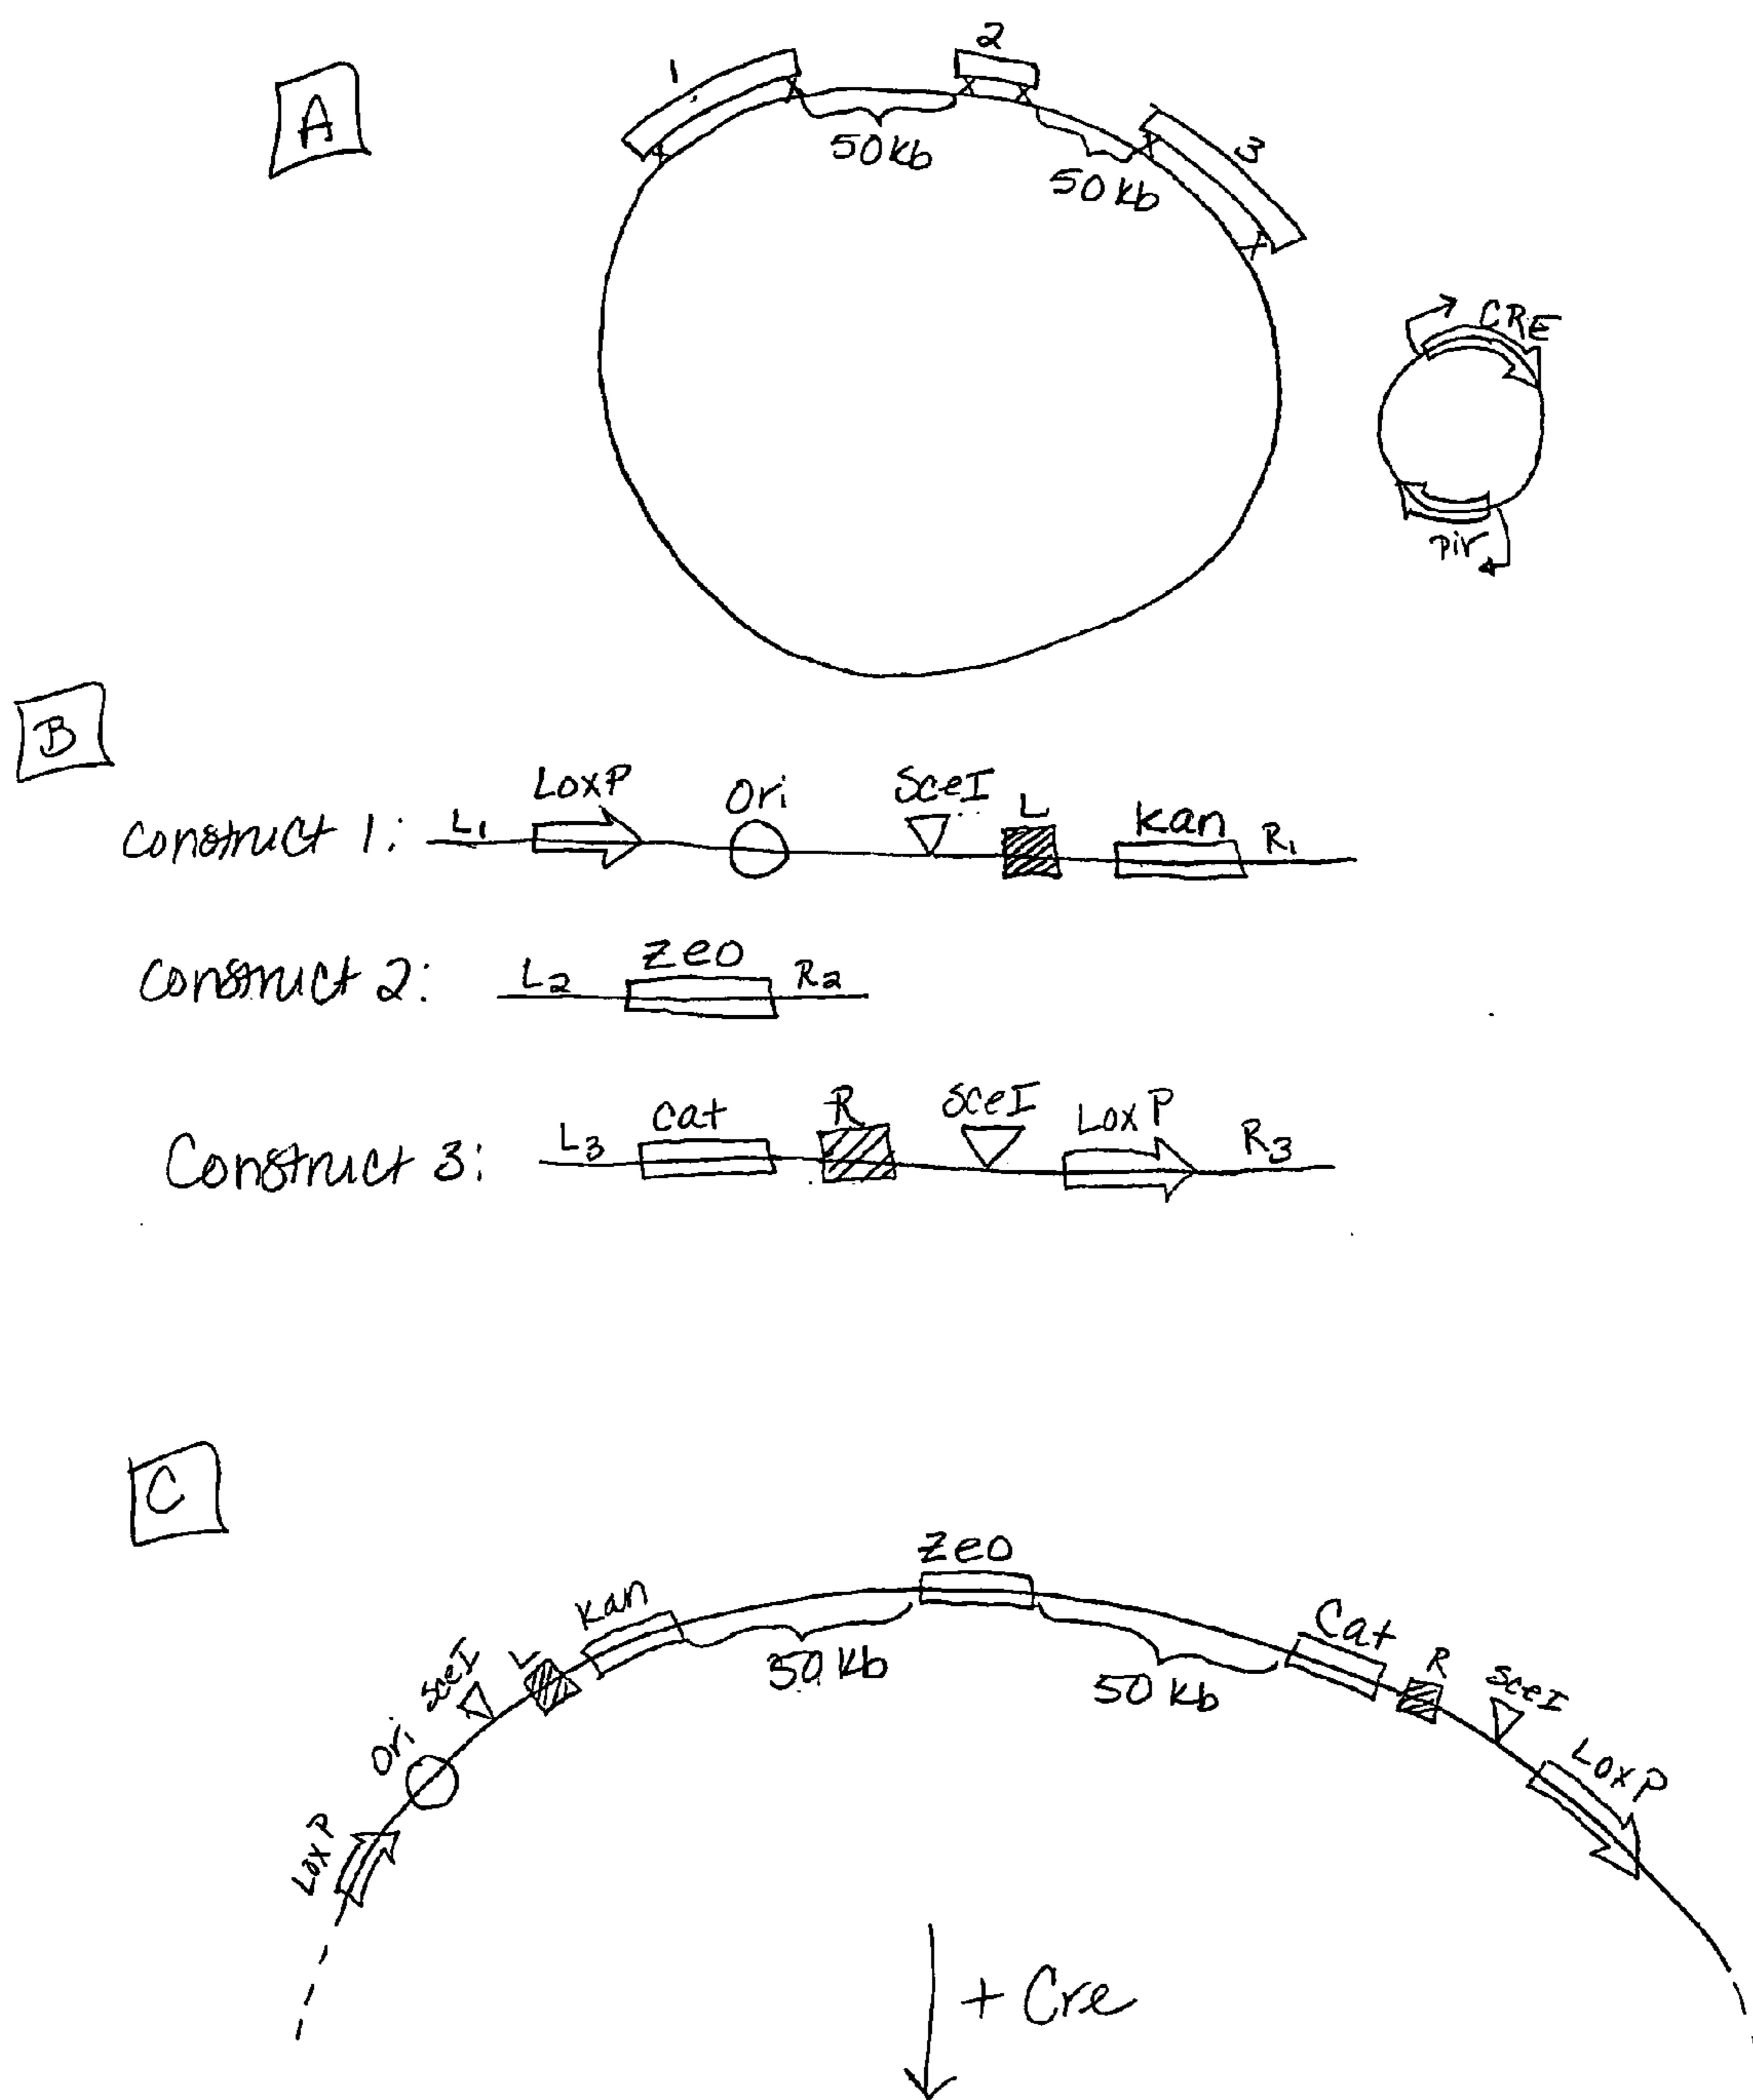 A
1
2
3
50kb
50kb
CRE
pir
B
Construct 1: L1 LoxP Ori SceI L kan R1
Construct 2: L2 Zeo R2
Construct 3: L3 Cat R SceI LoxP R3
C
LoxP Ori SceI L kan 50 kb Zeo 50 kb Cat R SceI LoxP
+ Cre